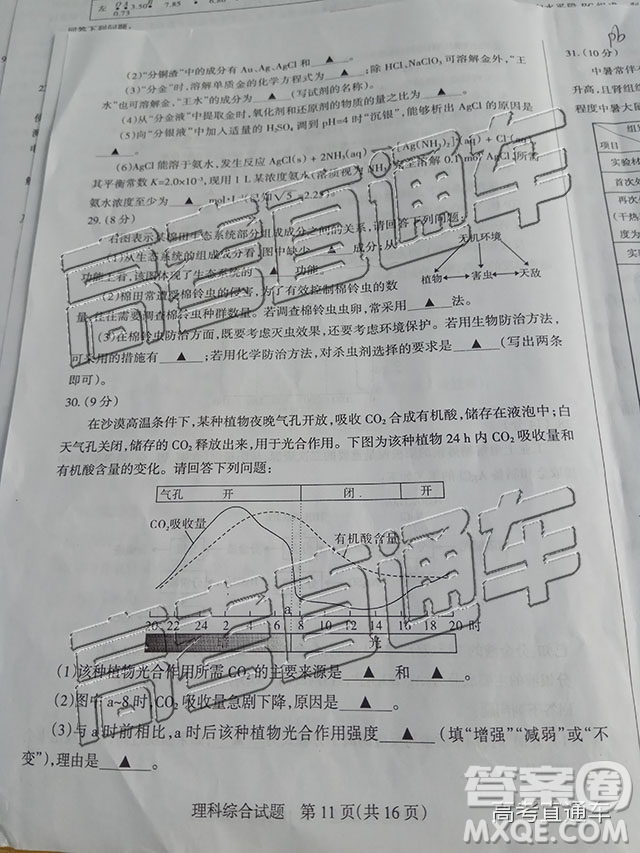 左
0.73
3.50
7.85
6.85
回答下列问题：
(2)“分铜渣”中的成分有 Au、Ag、AgCl 和 ▲ 。
(3)“分金”时，溶解单质金的化学方程式为 ▲ ；除 HCl、NaClO₃ 可溶解金外，“王
水”也可溶解金，“王水”的成分为 ▲ (写试剂的名称)。
(4)从“分金液”中提取金时，氧化剂和还原剂的物质的量之比为 ▲ 。
(5)向“分银液”中加入适量的 H₂SO₄ 调到 pH=4 时“沉银”，能够析出 AgCl 的原因是
▲ 。
(6)AgCl 能溶于氨水，发生反应 AgCl(s) + 2NH₃(aq) [Ag(NH₃)₂]⁺(aq) + Cl⁻(aq)
其平衡常数 K=2.0×10⁻³，现用 1 L 某浓度氨水(溶质视为 NH₃)完全溶解 0.1 mol AgCl，所需
氨水浓度至少为 ▲ mol·L⁻¹(已知√5 =2.25)。
29. (8 分)
右图表示某棉田生态系统部分组成成分之间的关系，请回答下列问题：
(1)从生态系统的组成成分看，图中缺少 ▲ 成分；从
功能上看，该图体现了生态系统的 ▲ 功能。
无机环境
植物
害虫
天敌
(2)棉田常遭受棉铃虫的侵害，为了有效控制棉铃虫的数
量，往往需要调查棉铃虫种群数量。若调查棉铃虫虫卵，常采用 ▲ 法。
(3)在棉铃虫防治方面，既要考虑灭虫效果，还要考虑环境保护。若用生物防治方法，
可采用的措施有 ▲ ；若用化学防治方法，对杀虫剂选择的要求是 ▲ (写出两条
即可)。
30. (9 分)
在沙漠高温条件下，某种植物夜晚气孔开放，吸收 CO₂ 合成有机酸，储存在液泡中；白
天气孔关闭，储存的 CO₂ 释放出来，用于光合作用。下图为该种植物 24 h 内 CO₂ 吸收量和
有机酸含量的变化。请回答下列问题：
气孔 开 闭 开
CO₂吸收量
有机酸含量
a
20 22 24 2 4 6 8 10 12 14 16 18 20 时
光
(1)该种植物光合作用所需 CO₂ 的主要来源是 ▲ 和 ▲ 。
(2)图中 a~8 时，CO₂ 吸收量急剧下降，原因是 ▲ 。
(3)与 a 时前相比，a 时后该种植物光合作用强度 ▲ (填“增强”“减弱”或“不
变”)，理由是 ▲ 。
理科综合试题 第 11 页(共 16 页)
31. (10 分)
中暑常伴有
升高，且肾组织
程度中暑大鼠
项目
实验材
首次处
再次
(干热
度为
实
高考直通车
高考直通车
高考直通车
答案圈
高考直通车
MXQE.COM